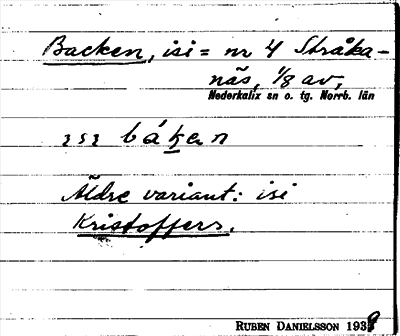 Backen, isi = nr 4 Stråka-
näs, 1/8 av,
Nederkalix sn o. tg. Norrb. län
ısı bákan
Äldre variant: isi
Kristoffers.
RUBEN DANIELSSON 1939